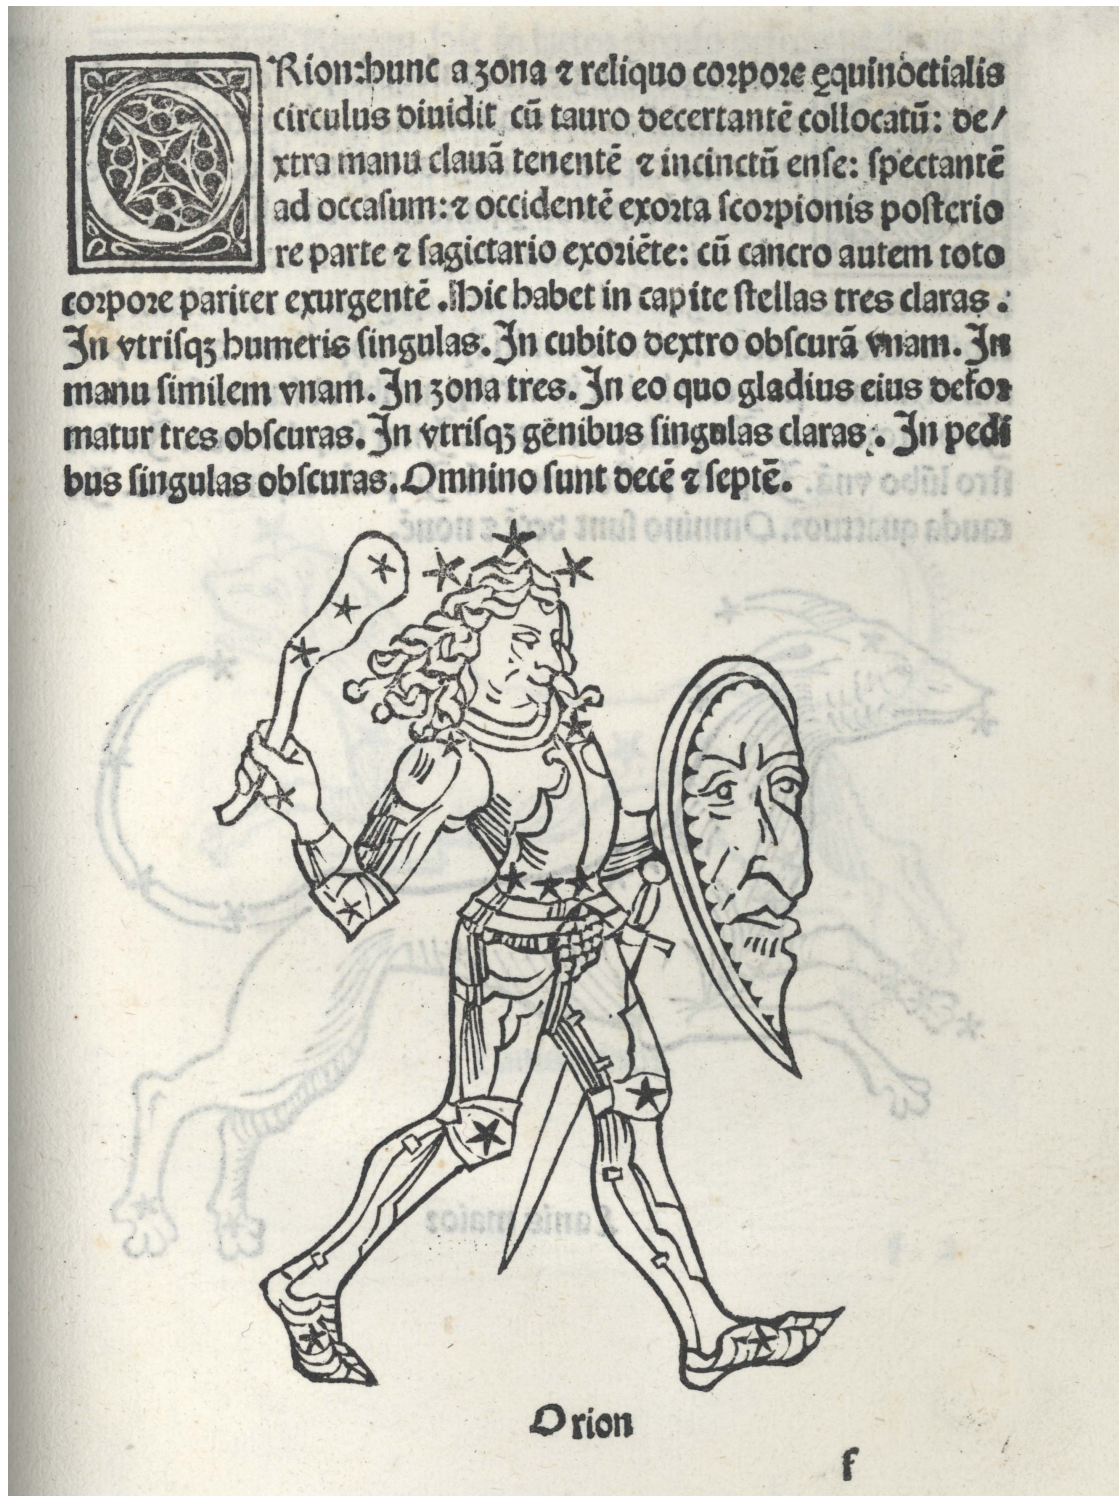 ORion:hunc a zona ⁊ reliquo corpore ęquinoctialis
circulus diuidit cū tauro decertantē collocatū: de/
xtra manu clauā tenentē ⁊ incinctū ense: spectantē
ad occasum:⁊ occidentē exorta scorpionis posterio
re parte ⁊ sagictario exoriēte: cū cancro autem toto
corpore pariter exurgentē .Hic habet in capite stellas tres claras .
In vtrisqꝫ humeris singulas. In cubito dextro obscurā vnam. In
manu similem vnam. In zona tres. In eo quo gladius eius defor
matur tres obscuras. In vtrisqꝫ genibus singulas claras. In pedi
bus singulas obscuras. Omnino sunt decē ⁊ septē.
Orion
f